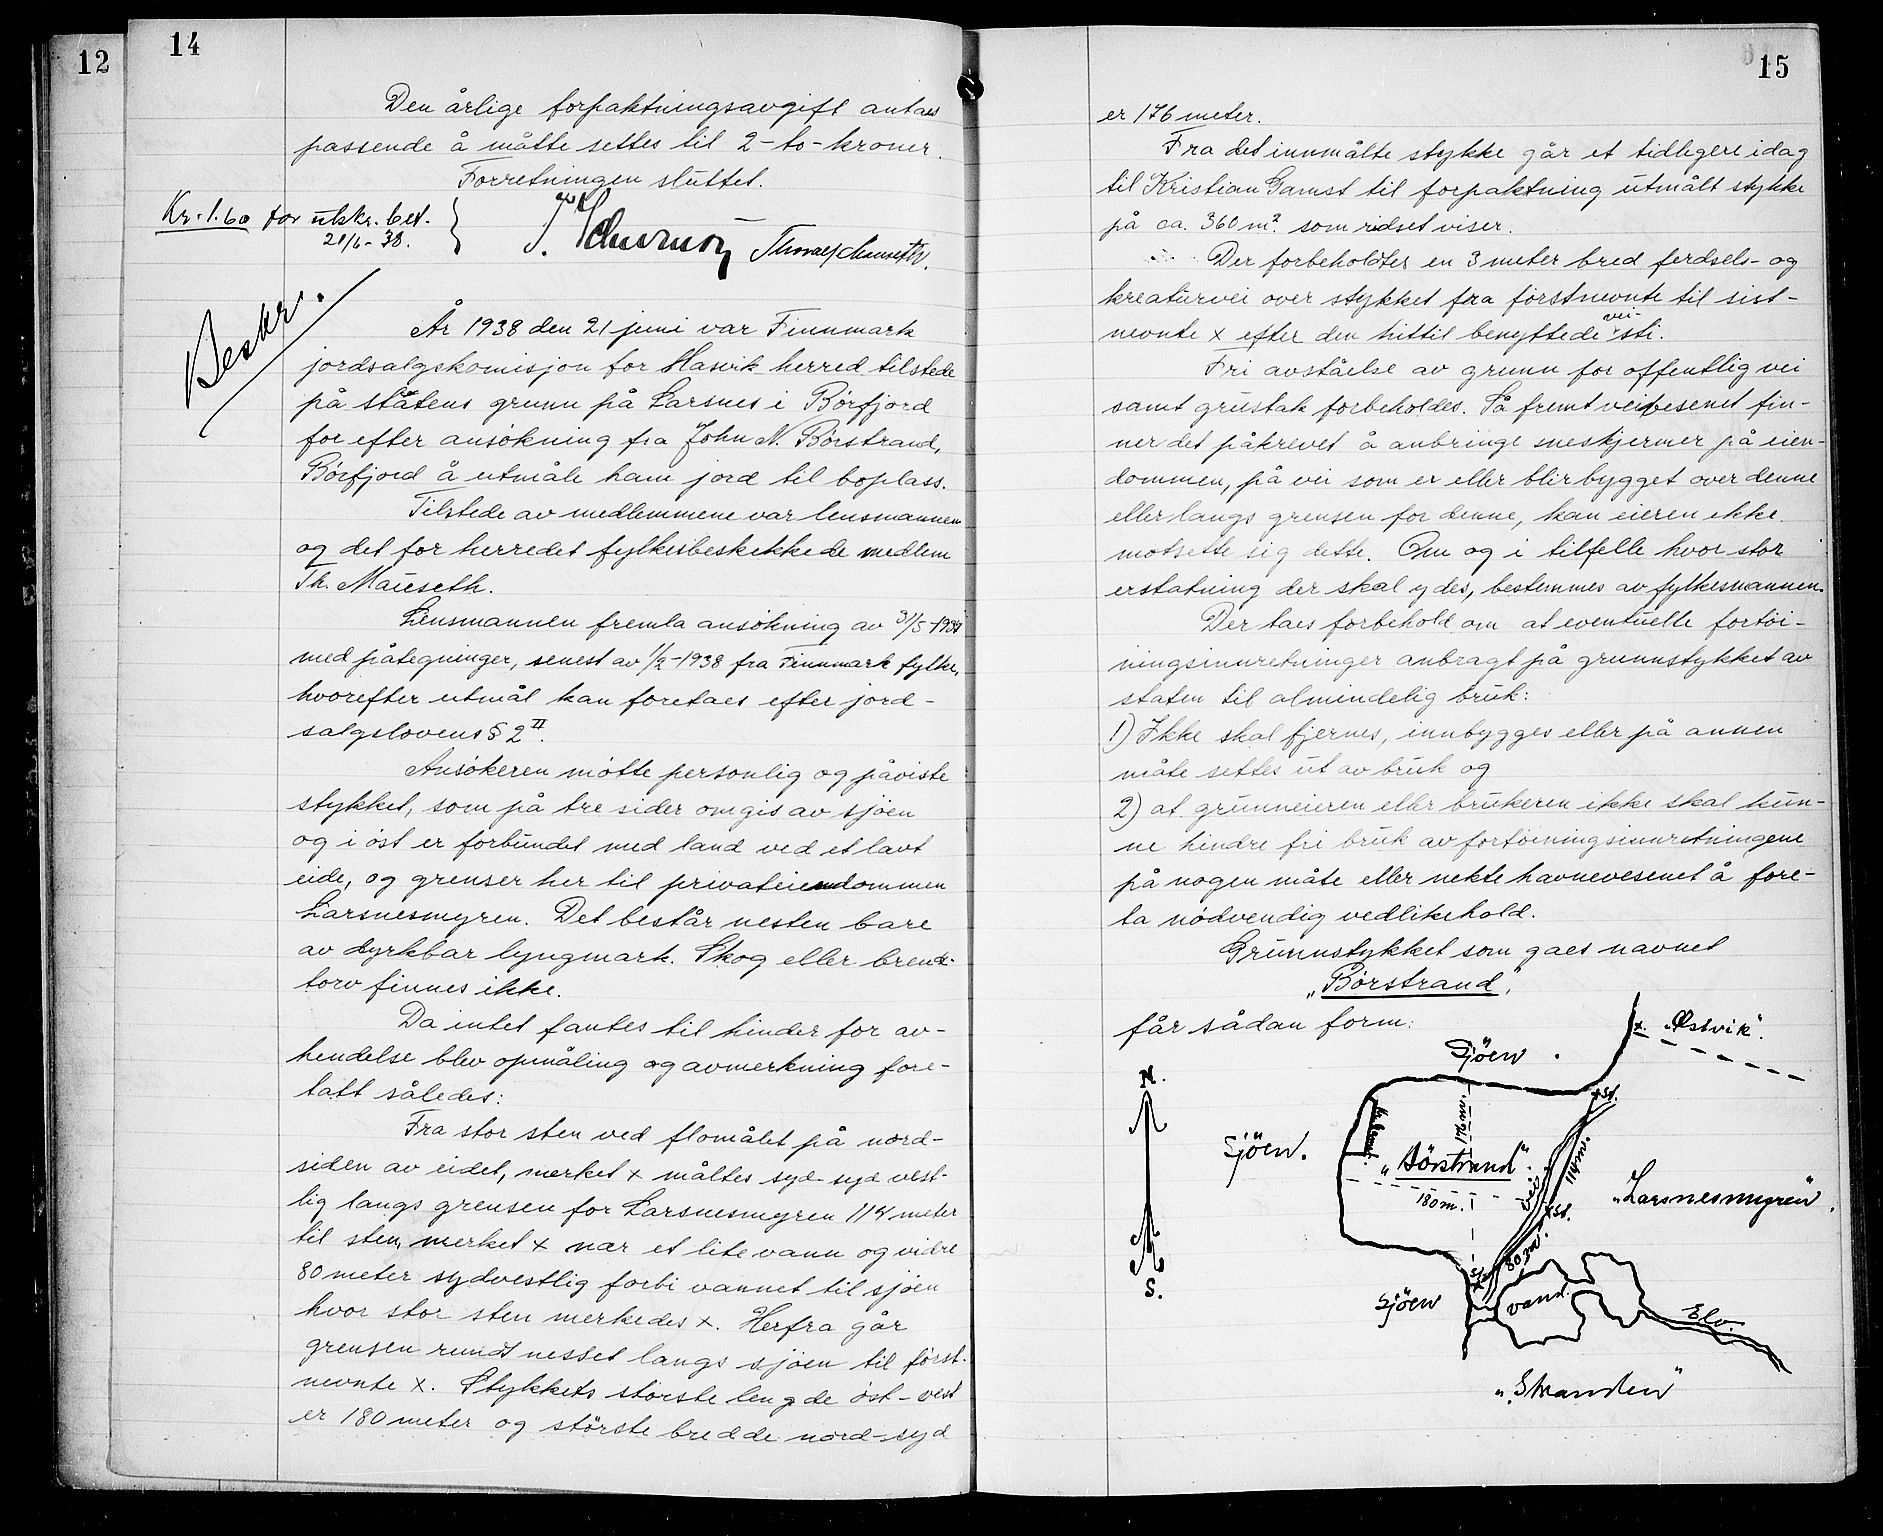 12
14
Den årlige forpaktningsavgift antaes
passende å måtte settes til 2-to-kroner.
Forretningen sluttet.
Kr. 1.60 for utskr. bet.
21/6-38.
Beskr.
År 1938 den 21 juni var Finnmark
jordsalgskomisjon for Hasvik herred tilstede
på statens grunn på Larsnes i Börfjord
for efter ansökning fra John N. Börstrand,
Börfjord å utmåle ham jord til boplass.
Tilstede av medlemmene var lensmannen
og det for herredet fylkesbeskikkede medlem
Th. Mauseth.
Lensmannen fremla ansökning av 31/5-1937
med påtegninger, senest av 1/2-1938 fra Finnmark fylke,
hvorefter utmål kan foretaes efter jord-
salgslovens § 2 II.
Ansökeren mötte personlig og påviste
stykket, som på tre sider omgis av sjöen
og i öst er forbundet med land ved et lavt
eide, og grenser her til privateiendommen
Larsnesmyren. Det består nesten bare
av dyrkbar lyngmark. Skog eller brend-
torv finnes ikke.
Da intet fantes til hinder for av-
hendelse blev opmåling og avmerkning fore-
tatt således:
Fra stor sten ved flomålet på nord-
siden av eidet, merket x måltes syd-syd vest-
lig langs grensen for Larsnesmyren 114 meter
til sten, merket x nær et lite vann og vidre
80 meter sydvestlig forbi vannet til sjöen
hvor stor sten merkedes x. Herfra går
grensen rundt nesset langs sjöen til först-
nevnte x. Stykkets störste lengde öst-vest
er 180 meter og störste bredde nord-syd
15
er 176 meter.
Fra det innmålte stykke går et tidligere idag
til Kristian Gamst til forpaktning utmålt stykke
på ca. 360 m². som ridset viser.
Der forbeholdtes en 3 meter bred ferdsels- og
kreaturvei over stykket fra förstnevnte til sist-
nevnte x efter den hittil benyttede vei-sti.
Fri avståelse av grunn for offentlig vei
samt grustak forbeholdes. Så fremt veivesenet fin-
ner det påkrevet å anbringe sneskjermer på eien-
dommen, på vei som er eller blir bygget over denne
eller langs grensen for denne, kan eieren ikke
motsette sig dette. Om og i tilfelle hvor stor
erstatning der skal ydes, bestemmes av fylkesmannen.
Der taes forbehold om at eventuelle fortöi-
ningsinnretninger anbragt på grunnstykket av
staten til almindelig bruk:
1) Ikke skal fjernes, innbygges eller på annen
måte settes ut av bruk og
2) at grunneieren eller brukeren ikke skal kun-
ne hindre fri bruk av fortöiningsinnretningene
på nogen måte eller nekte havnevesenet å fore-
ta nödvendig vedlikehold.
Grunnstykket som gaes navnet
"Börstrand",
får sådan form:
x. "Östvik".
Sjöen
N.
x st.
176 m.
Sjöen.
"Börstrand".
114 m.
180 m.
vei
"Larsnesmyren".
x st.
80 m.
S.
Sjöen
vand.
Elv.
"Stranden"